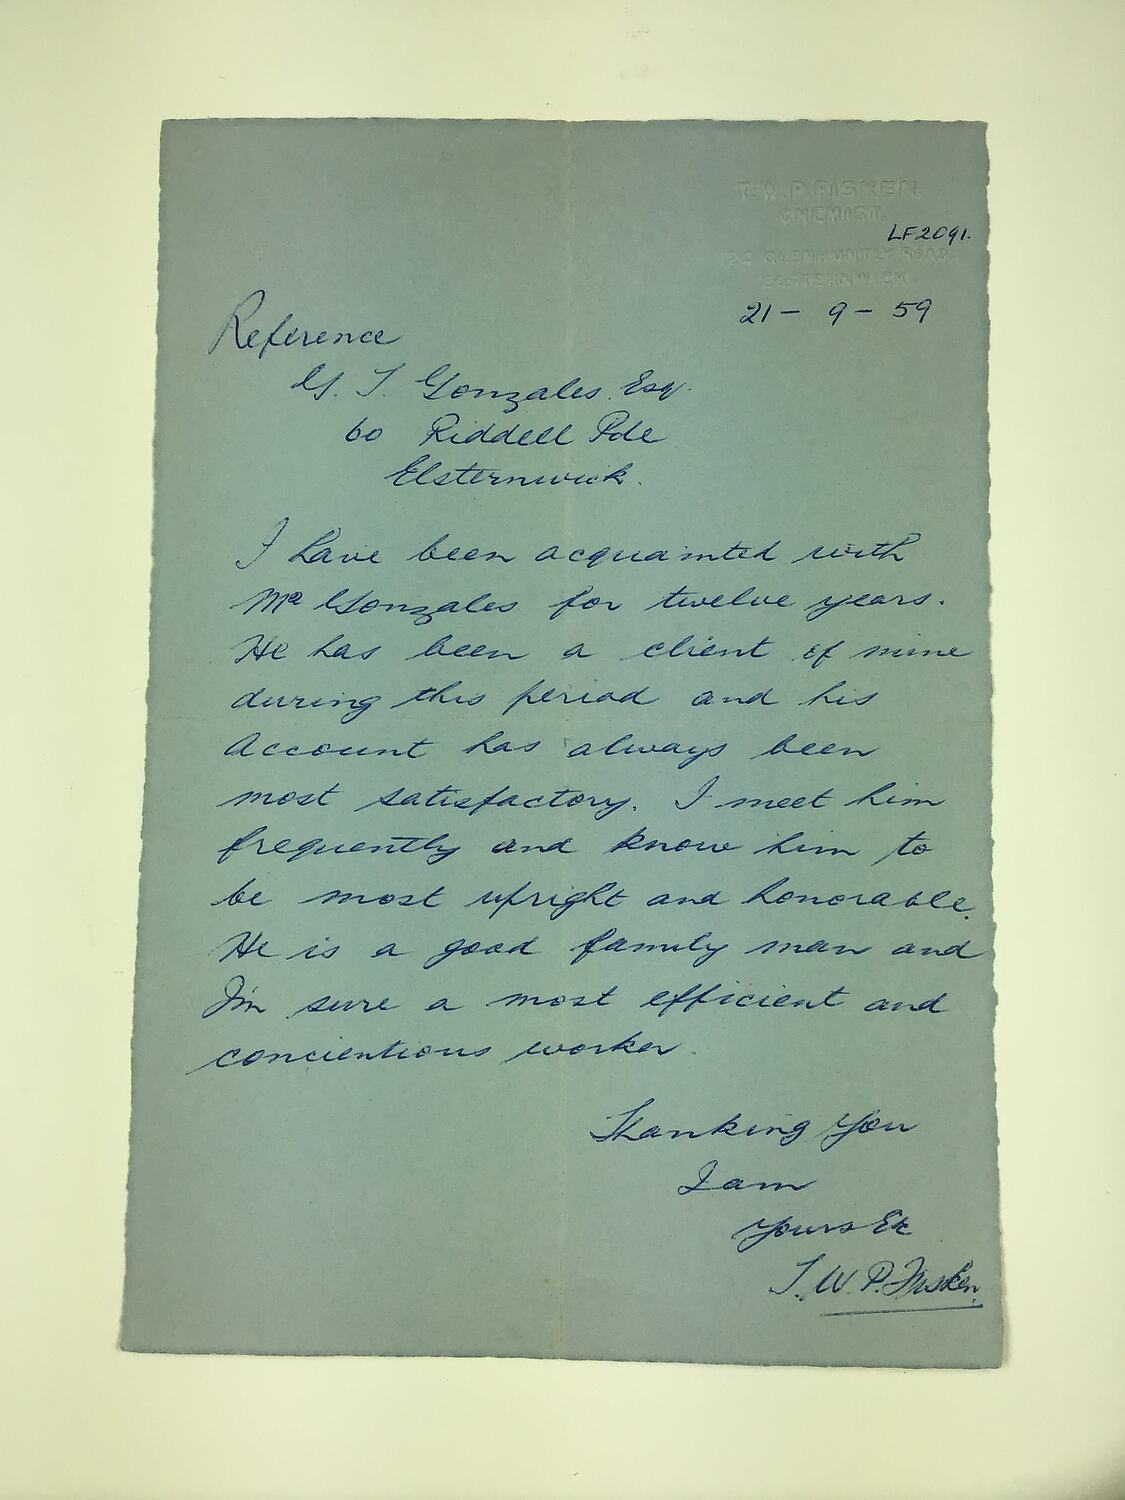 T. W. P. FISKEN,
CHEMIST.
LF2091.
GLENHUNTLY ROAD,
ELSTERNWICK.
21 - 9 - 59
Reference
G. T. Gonzales. Esq.
60 Riddell Pde
Elsternwick.
I have been acquainted with
Mr Gonzales for twelve years.
He has been a client of mine
during this period and his
Account has always been
most satisfactory. I meet him
frequently and know him to
be most upright and honorable.
He is a good family man and
I'm sure a most efficient and
concientious worker.
Thanking You
I am
Yours Etc
T. W. P. Fisken.